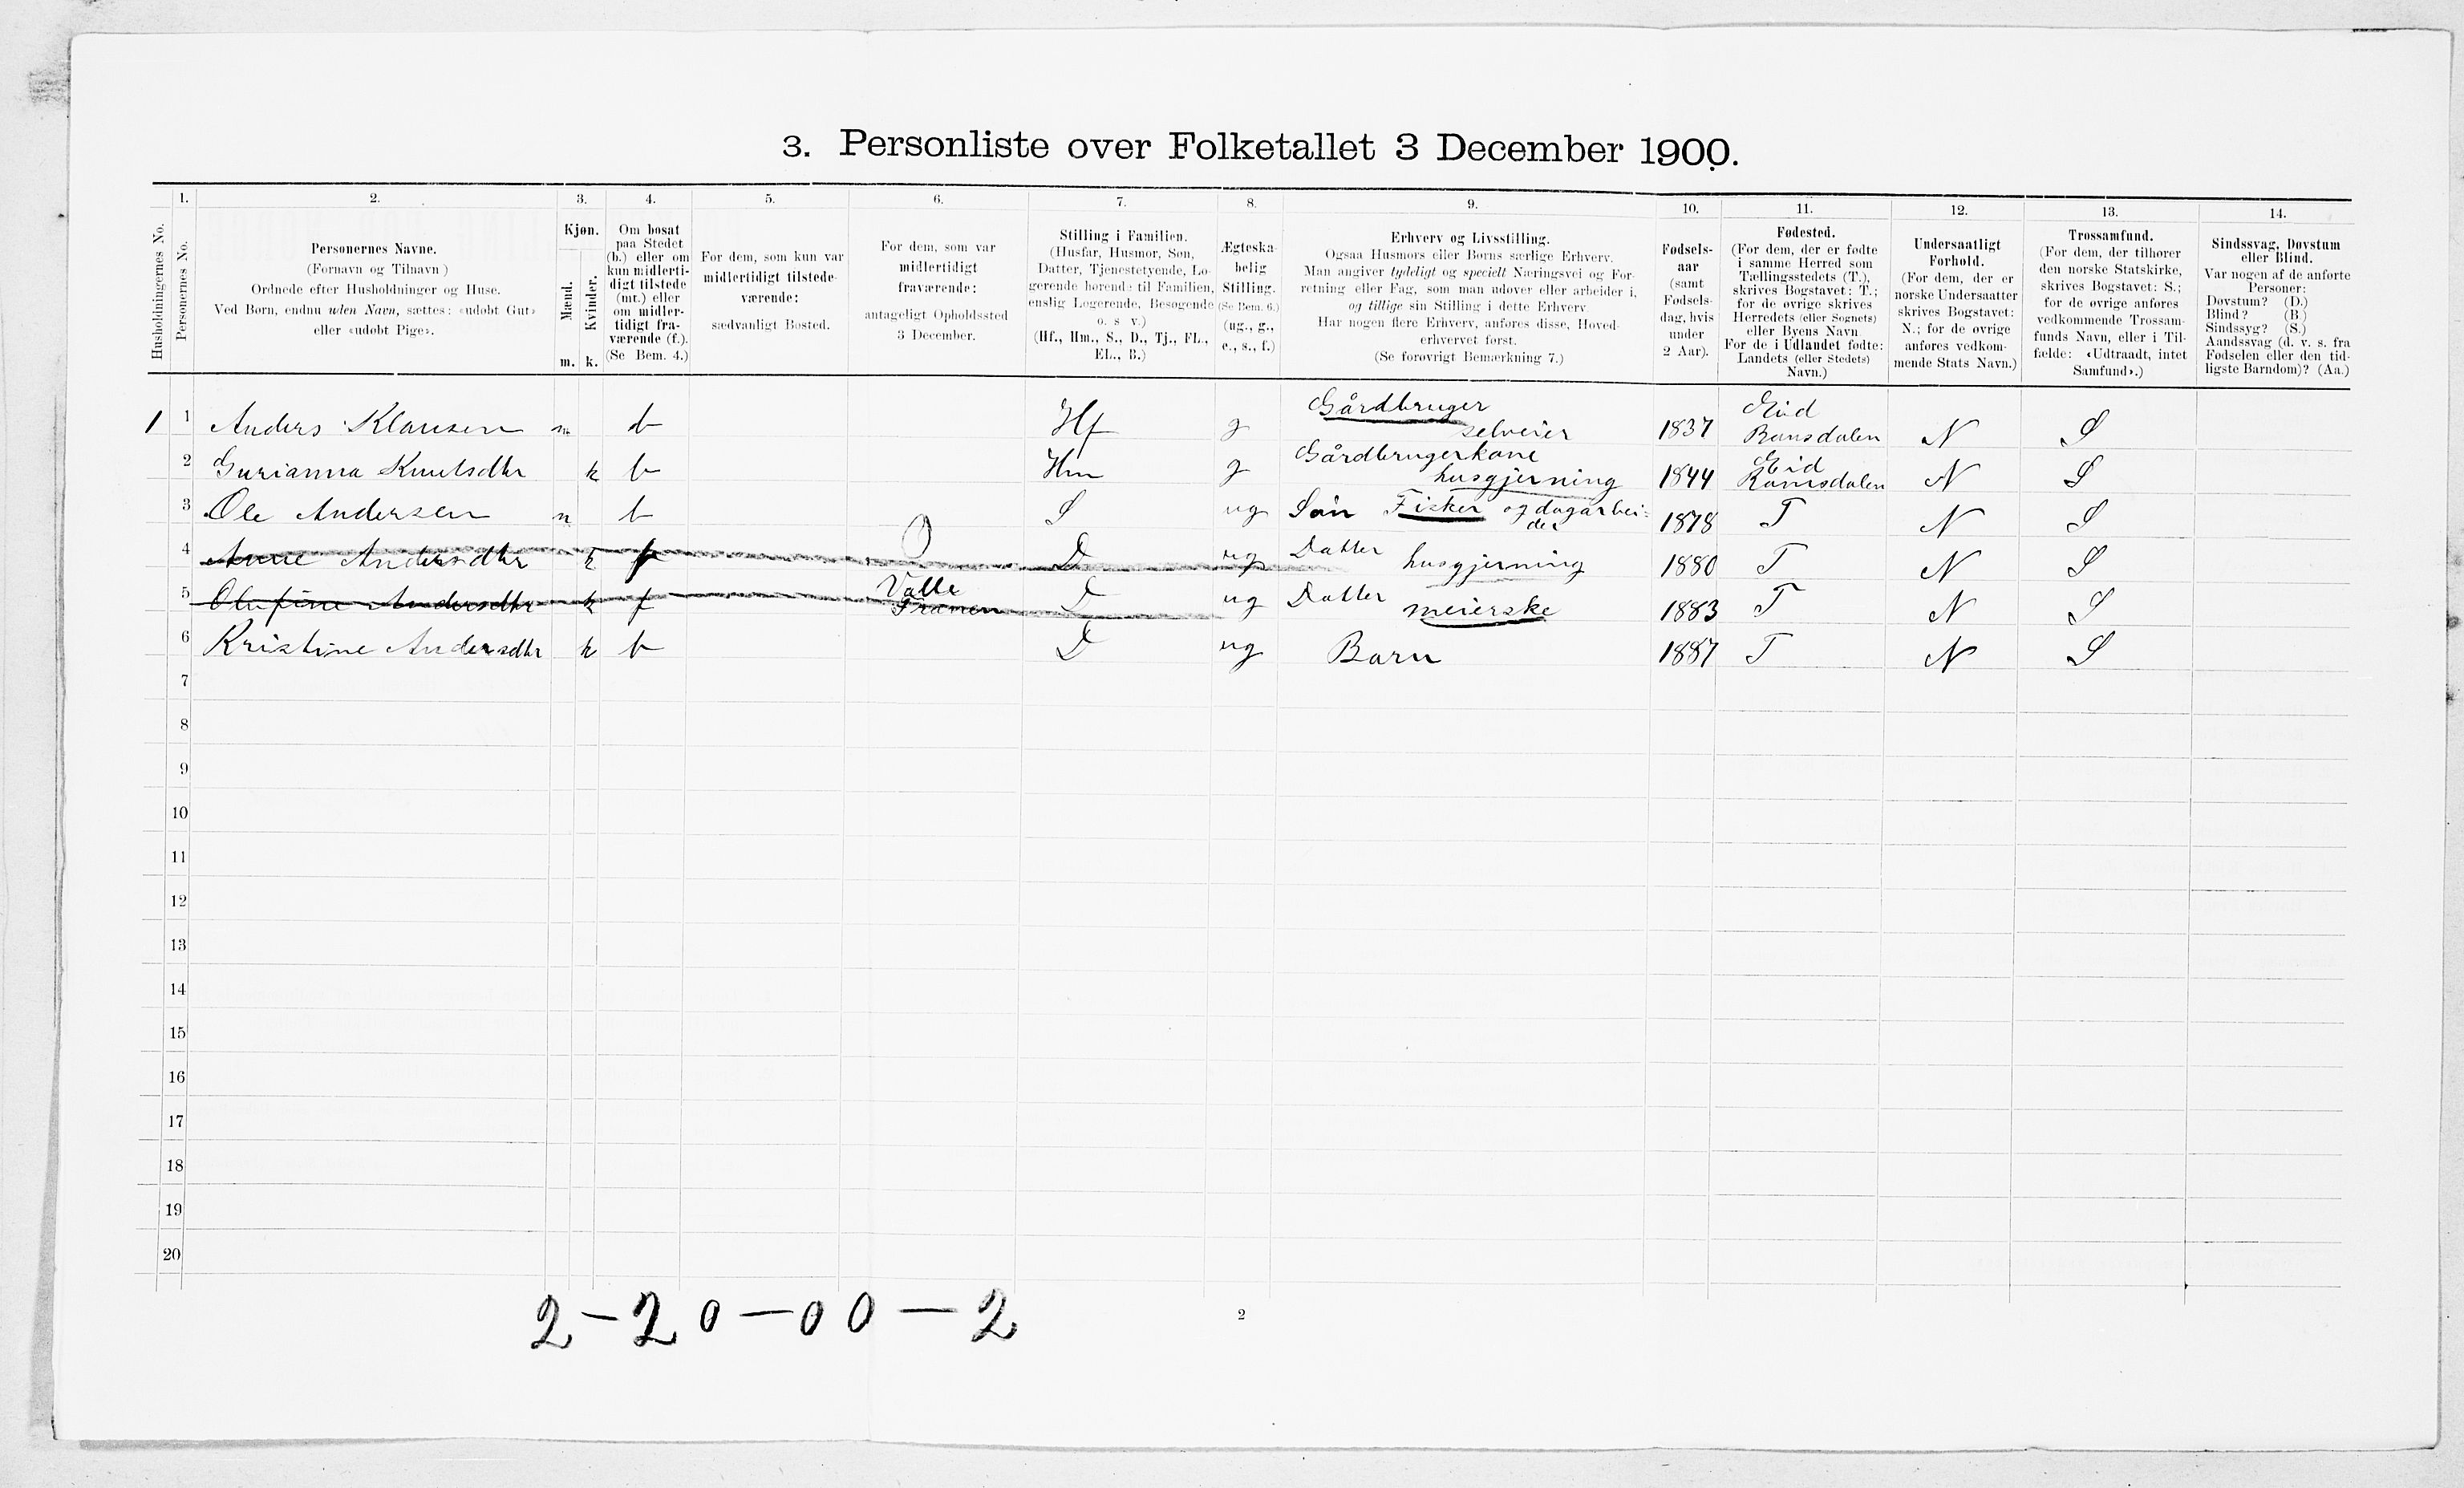 3. Personliste over Folketallet 3 December 1900.
Husholdningernes No.
1.
Personernes No.
2.
Personernes Navne.
(Fornavn og Tilnavn )
Ordnede efter Husholdninger og Huse.
Ved Børn, endnu uden Navn, sættes: «udøbt Gut»
eller «udøbt Pige».
3.
Kjøn.
Mænd.
Kvinder.
m. k.
4.
Om bosat
paa Stedet
(b.) eller om
kun midlerti-
digt tilstede
(mt.) eller
om midler-
tidigt fra-
værende (f.).
(Se Bem. 4.)
5.
For dem, som kun var
midlertidigt tilstede-
værende:
sædvanligt Bosted.
6.
For dem, som var
midlertidigt
fraværende:
antageligt Opholdssted
3 December.
7.
Stilling i Familien.
(Husfar, Husmor, Søn,
Datter, Tjenestetyende, Lo-
gerende hørende til Familien,
enslig Logerende, Besøgende
o. s v.)
(Hf., Hm., S., D., Tj., FL.,
EL., B.)
8.
Ægteska-
belig
Stilling.
(Se Bem. 6.)
(ug., g.,
e., s., f.)
9.
Erhverv og Livsstilling.
Ogsaa Husmors eller Børns særlige Erhverv.
Man angiver tydeligt og specielt Næringsvei og For-
retning eller Fag, som man udøver eller arbeider i,
og tillige sin Stilling i dette Erhverv.
Har nogen flere Erhverv, anføres disse, Hoved-
erhvervet først.
(Se forøvrigt Bemærkning 7.)
10.
Fødsels-
aar
(samt
Fødsels-
dag, hvis
under
2 Aar).
11.
Fødested.
(For dem, der er fødte
i samme Herred som
Tællingsstedets (T.),
skrives Bogstavet: T.;
for de øvrige skrives
Herredets (eller Sognets)
eller Byens Navn.
For de i Udlandet fødte:
Landets (eller Stedets)
Navn.)
12.
Undersaatligt
Forhold.
(For dem, der er
norske Undersaatter
skrives Bogstavet:
N.; for de øvrige
anføres vedkom-
mende Stats Navn.)
13.
Trossamfund.
(For dem, der tilhører
den norske Statskirke,
skrives Bogstavet: S.;
for de øvrige anføres
vedkommende Trossam-
funds Navn, eller i Til-
fælde: «Udtraadt, intet
Samfund».)
14.
Sindssvag, Døvstum
eller Blind.
Var nogen af de anførte
Personer:
Døvstum? (D.)
Blind? (B.)
Sindssyg? (S.)
Aandssvag (d. v. s. fra
Fødselen eller den tid-
ligste Barndom)? (Aa.)
1 1 Anders Klausen m b Hf g Gårdbruger selveier 1837 Eid Romsdalen N S
2 Gurianna Knutsdtr k b Hm g Gårdbrugerkone husgjerning 1844 Eid Romsdalen N S
3 Ole Andersen m b S ug Søn Fisker og dagarbei- der 1878 T N S
4 Anne Andersdtr k D ug Datter husgjerning 1880 T N S
5 Olufine Andersdtr k f Valle D ug Datter meierske 1883 T N S
6 Kristine Andersdtr k b D ug Barn 1887 T N S
7
8
9
10
11
12
13
14
15
16
17
18
19
20
2 – 20 – 00 – 2
2